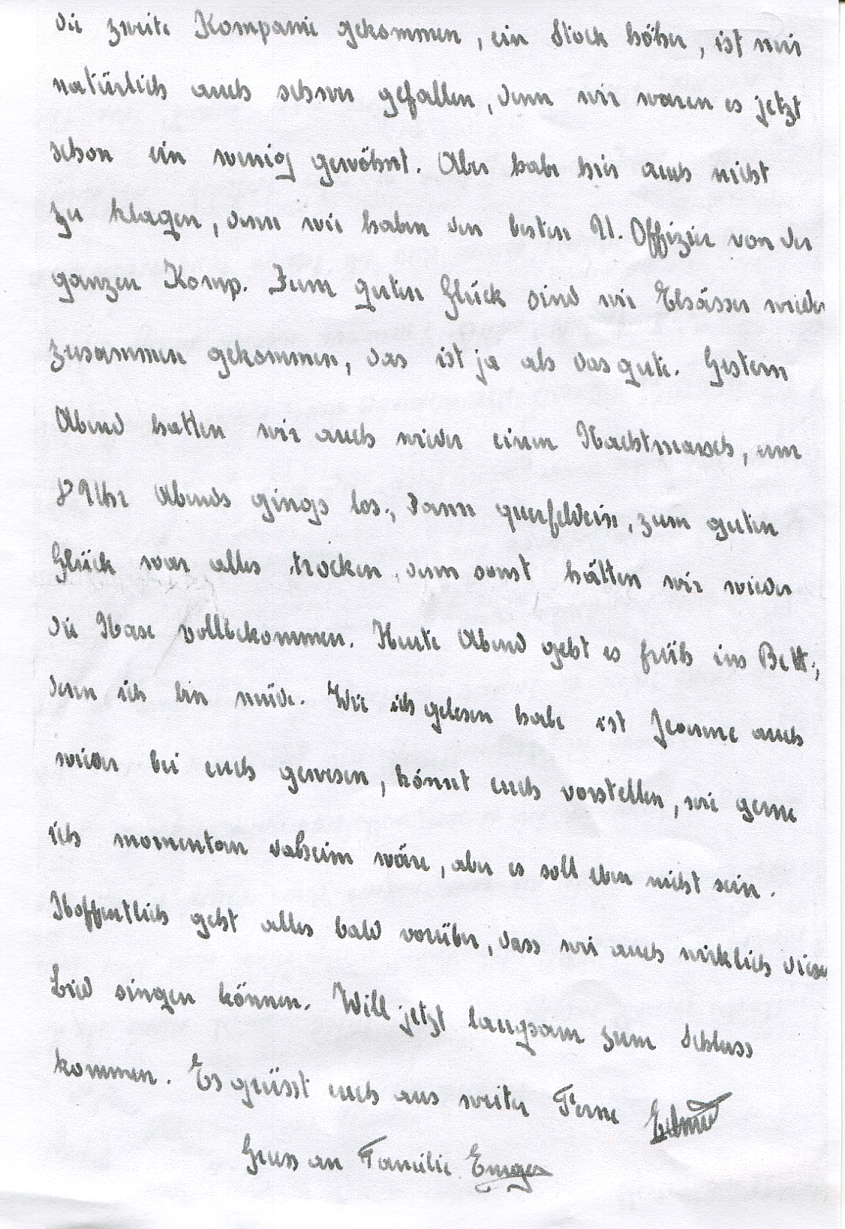 die zweite Kompanie gekommen, ein Stock höher, ist mir
natürlich auch schwer gefallen, denn wir waren es jetzt
schon ein wenig gewöhnt. Aber habe hier auch nicht
zu klagen, denn wir haben den besten U. Offizier von der
ganzen Komp. Zum guten Glück sind wir Elsässer wieder
zusammen gekommen, das ist ja als das gute. Gestern
Abend hatten wir auch wieder einen Nachtmarsch, um
8 Uhr Abends gings los, dann querfeldein, zum guten
Glück war alles trocken, denn sonst hätten wir wieder
die Nase vollbekommen. Heute Abend geht es früh ins Bett,
denn ich bin müde. Wie ich gelesen habe ist Jeanne auch
wieder bei euch gewesen, könnt euch vorstellen, wie gerne
ich momentan daheim wäre, aber es soll eben nicht sein.
Hoffentlich geht alles bald vorüber, dass wir auch wirklich dieses
Lied singen können. Will jetzt langsam zum Schluss
kommen. Es grüsst euch aus weiter Ferne
Gruss an Familie